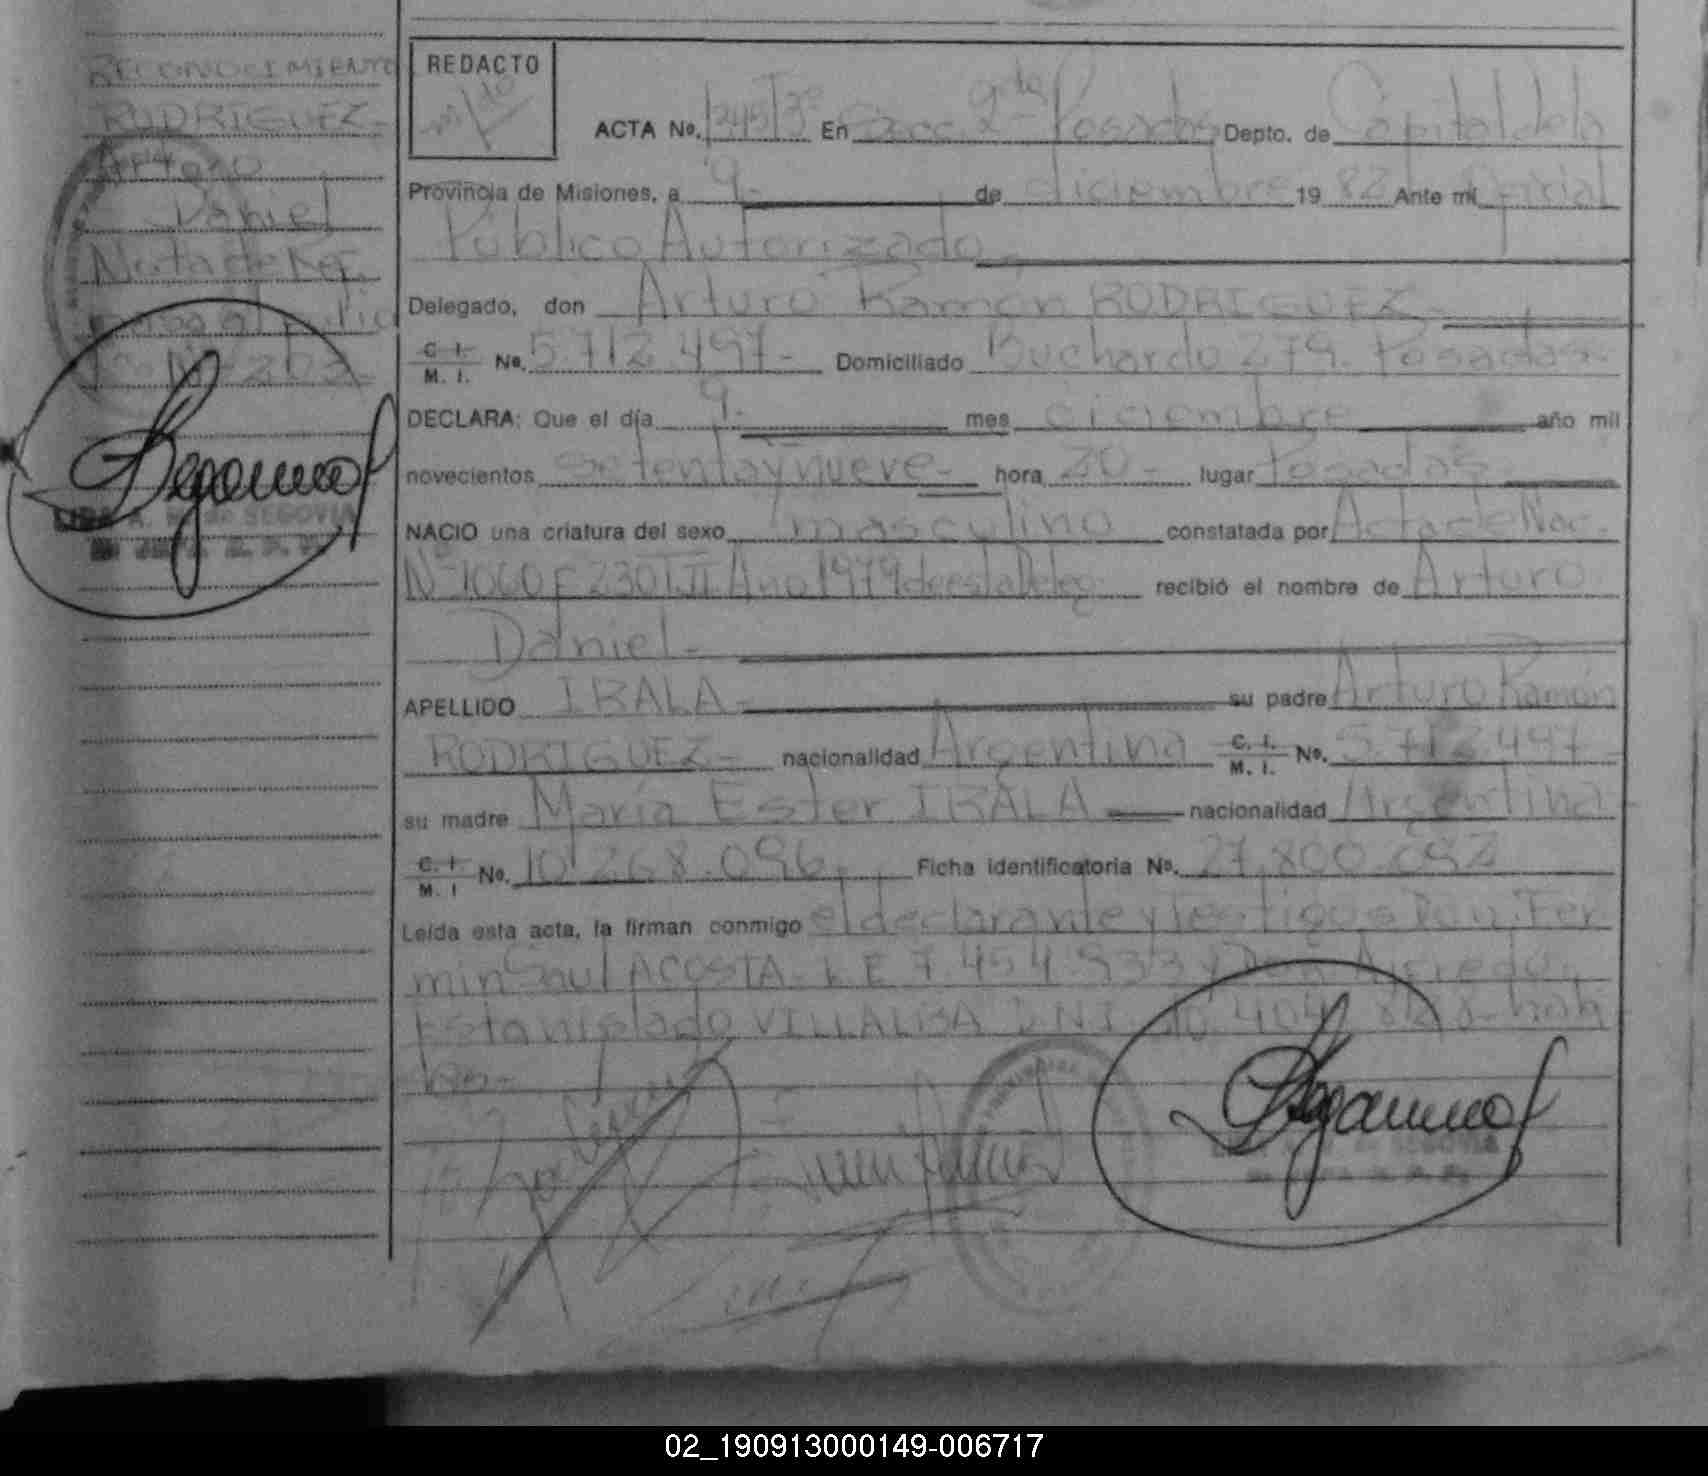 RECONOCIMIENTO
RODRIGUEZ-
Arturo
Daniel
Nota de Ref.
REDACTO
ACTA No. 1245 T3º En Secc. 2da Posadas Depto. de Capital de la
Provincia de Misiones, a 9- de diciembre 19 82 Ante mi Oficial
Público Autorizado-
Delegado, don Arturo Ramón RODRIGUEZ-
C. I. M. I. No. 5.712.497- Domiciliado Buchardo 279. Posadas-
DECLARA: Que el día 9- mes diciembre año mil
novecientos setenta y nueve- hora 20- lugar Posadas-
NACIO una criatura del sexo masculino constatada por Acta de Nac.
Nº 1060 F 230 T II Año 1979 de esta Deleg. recibió el nombre de Arturo
Daniel-
APELLIDO IRALA- su padre Arturo Ramón
RODRIGUEZ- nacionalidad Argentina C. I. M. I. No. 5.712.497-
su madre María Ester IRALA nacionalidad Argentina
C. I. M. I No. 10.268.096- Ficha identificatoria No. 27.800.692
Leída esta acta, la firman conmigo el declarante y testigos Don Fer
min Saul ACOSTA- L.E 7.454.933 y Don Alfredo
Estanislado VILLALBA D.N.I. 10.404.828- hábi
les-
SEGOVIA
02_190913000149-006717